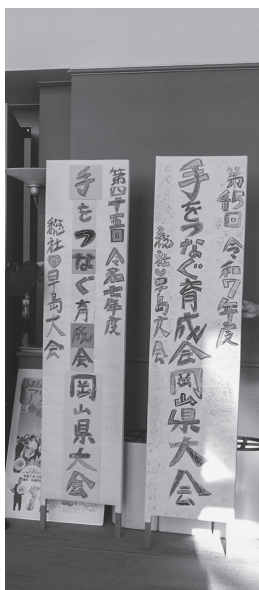 第45回 令和7年度
手をつなぐ育成会岡山県大会
総社♥早島大会
第四十五回 令和七年度
手をつなぐ育成会岡山県大会
総社♥早島大会